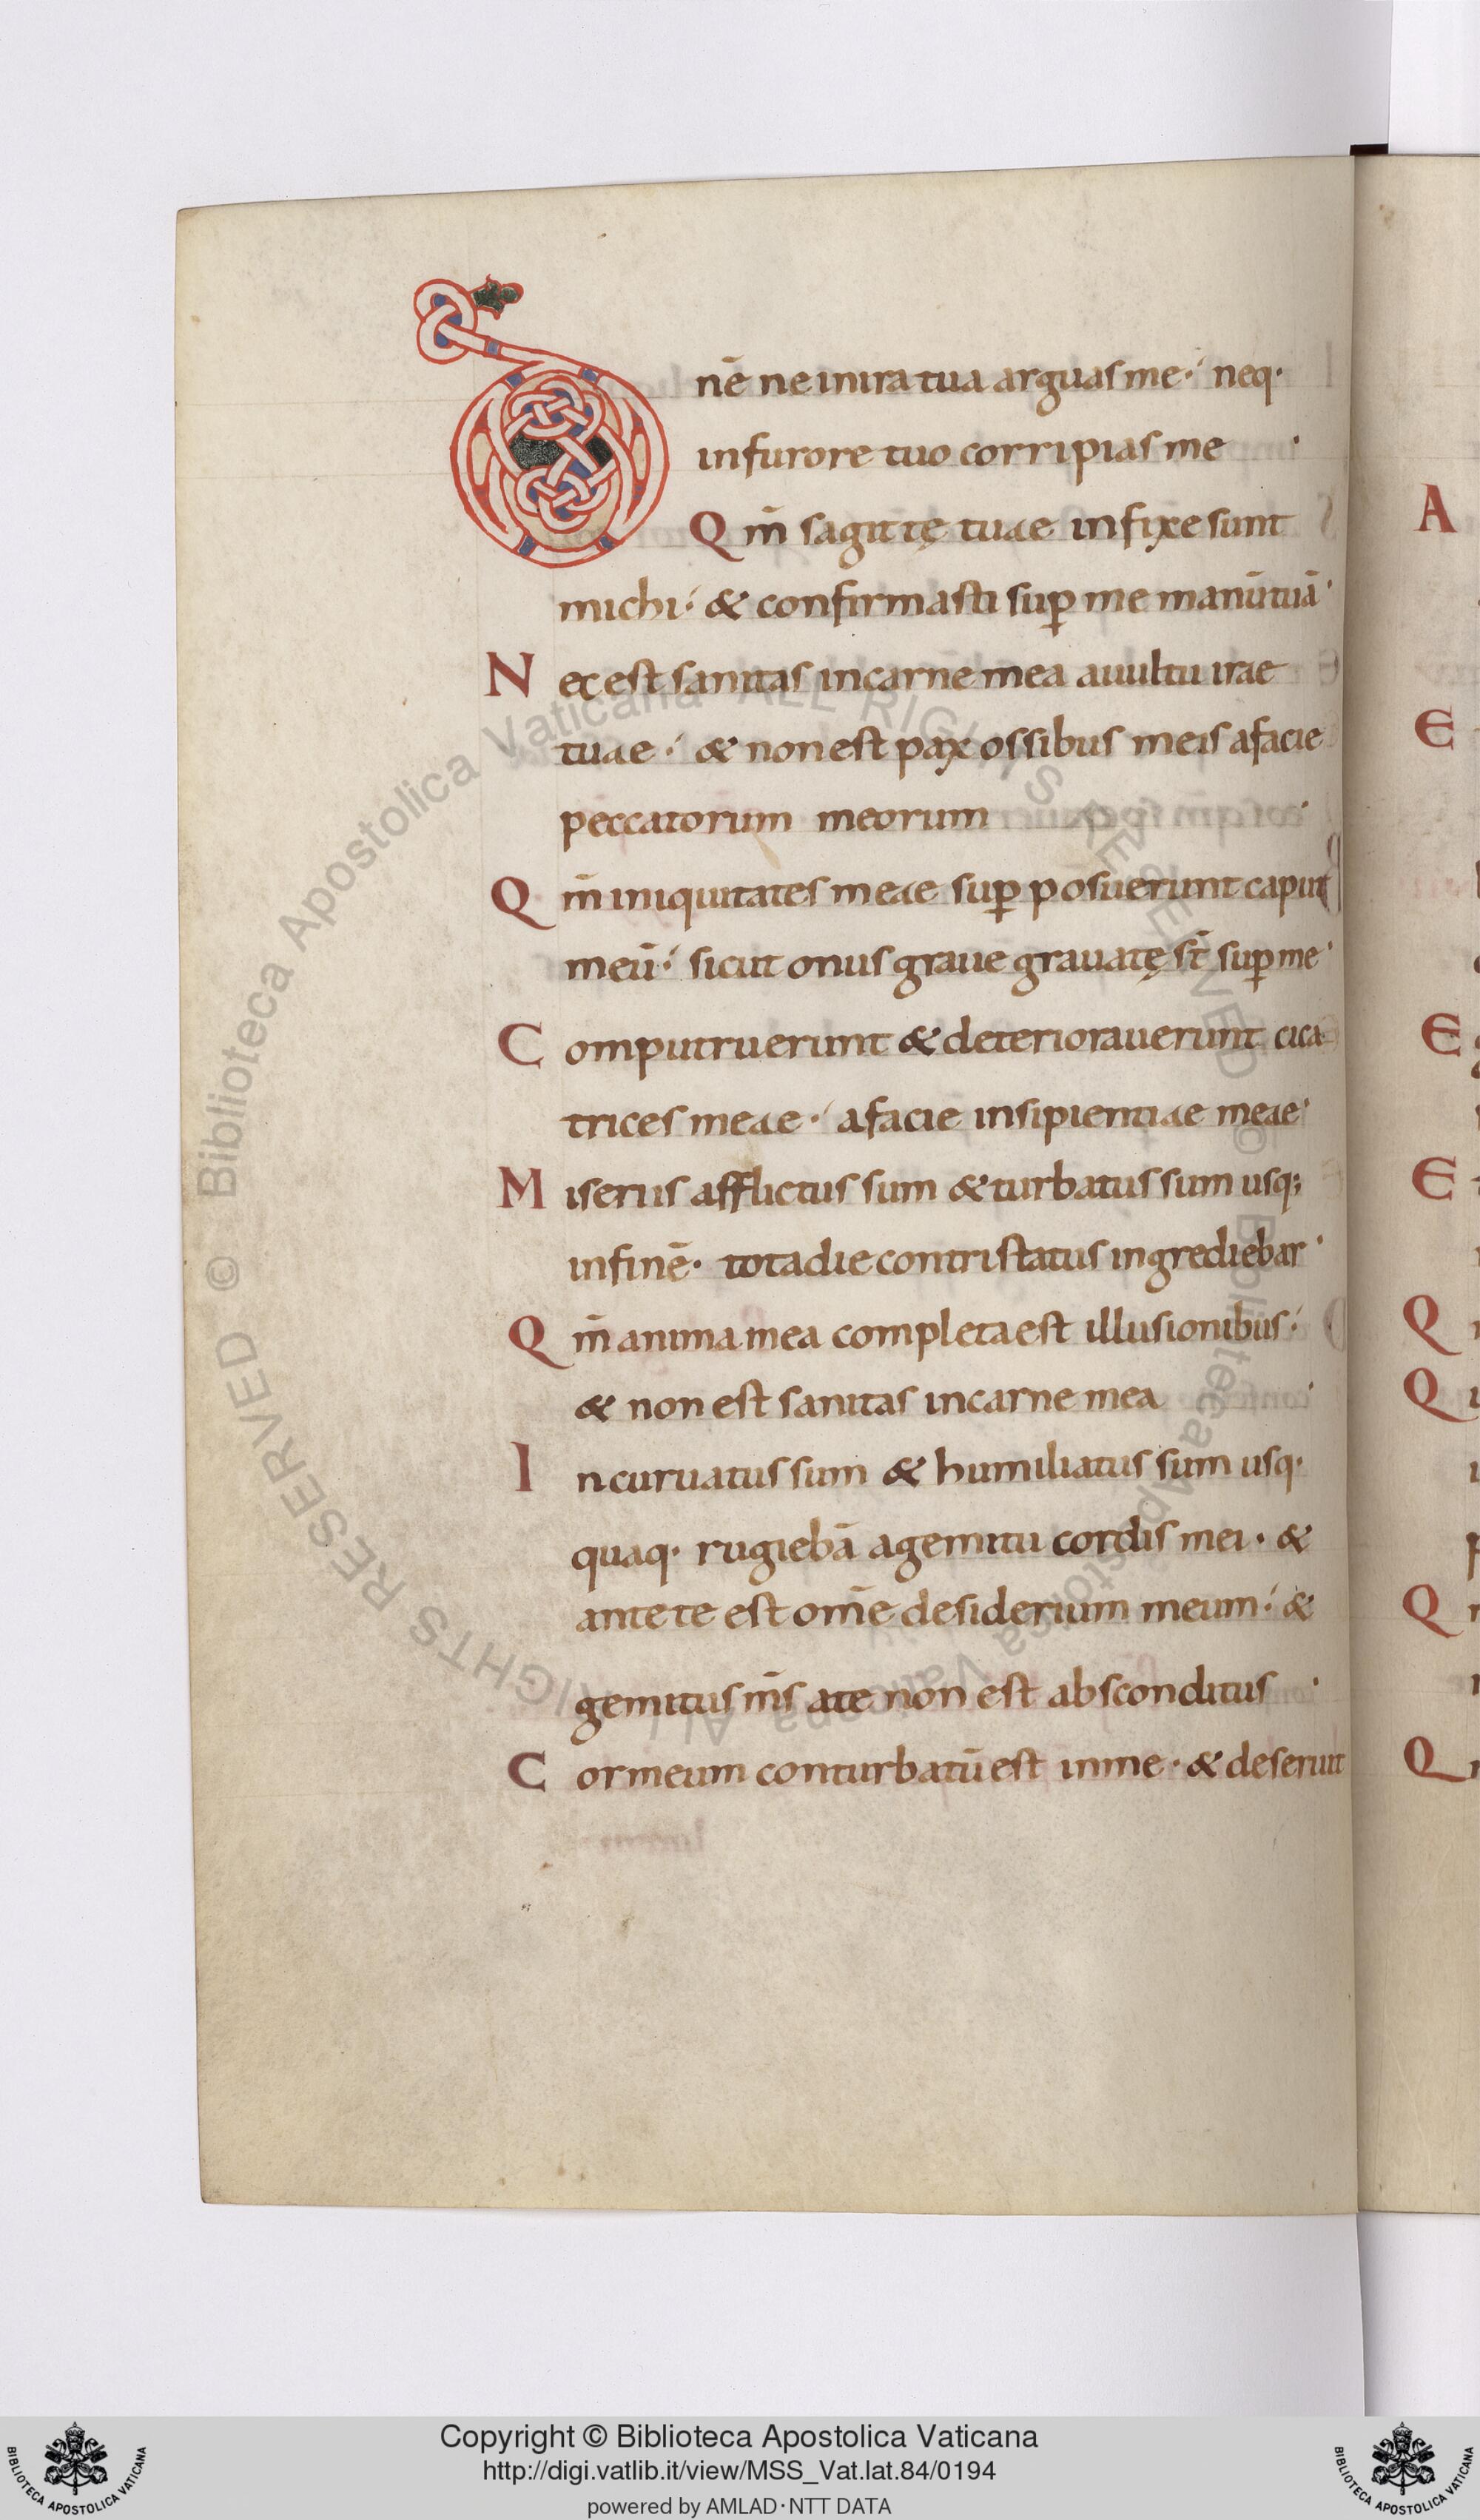 Dnē ne in ira tua arguas me· neq·
in furore tuo corripias me ·
Qm̄ sagittę tuae infixe sunt
michi· & confirmasti sup̱ me manū tuā·
Nec est sanitas in carne mea a uultu irae
tuae· & non est pax ossibus meis a facie
peccatorum meorum ·
Qm̄ iniquitates meae sup̱posuerunt caput
meū· sicut onus graue grauatę st̄ sup̱ me·
Computruerunt & deteriorauerunt cica
trices meae· a facie insipientiae meae·
Miserus afflictus sum & turbatus sum usq;
in finē· tota die contristatus ingrediebar·
Qm̄ anima mea completa est illusionibus·
& non est sanitas in carne mea ·
Incuruatus sum & humiliatus sum usq·
quaq· rugiebā a gemitu cordis mei· &
ante te est om̄e desiderium meum· &
gemitus m̄s a te non est absconditus ·
Cor meum conturbatū est in me· & deseruit
A
E
E
E
Q
Q
Q
Q
© Biblioteca Apostolica Vaticana ALL RIGHTS RESERVED © Biblioteca Apostolica Vaticana ALL RIGHTS RESERVED
Copyright © Biblioteca Apostolica Vaticana
http://digi.vatlib.it/view/MSS_Vat.lat.84/0194
powered by AMLAD·NTT DATA
BIBLIOTECA APOSTOLICA VATICANA
BIBLIOTECA APOSTOLICA VATICANA